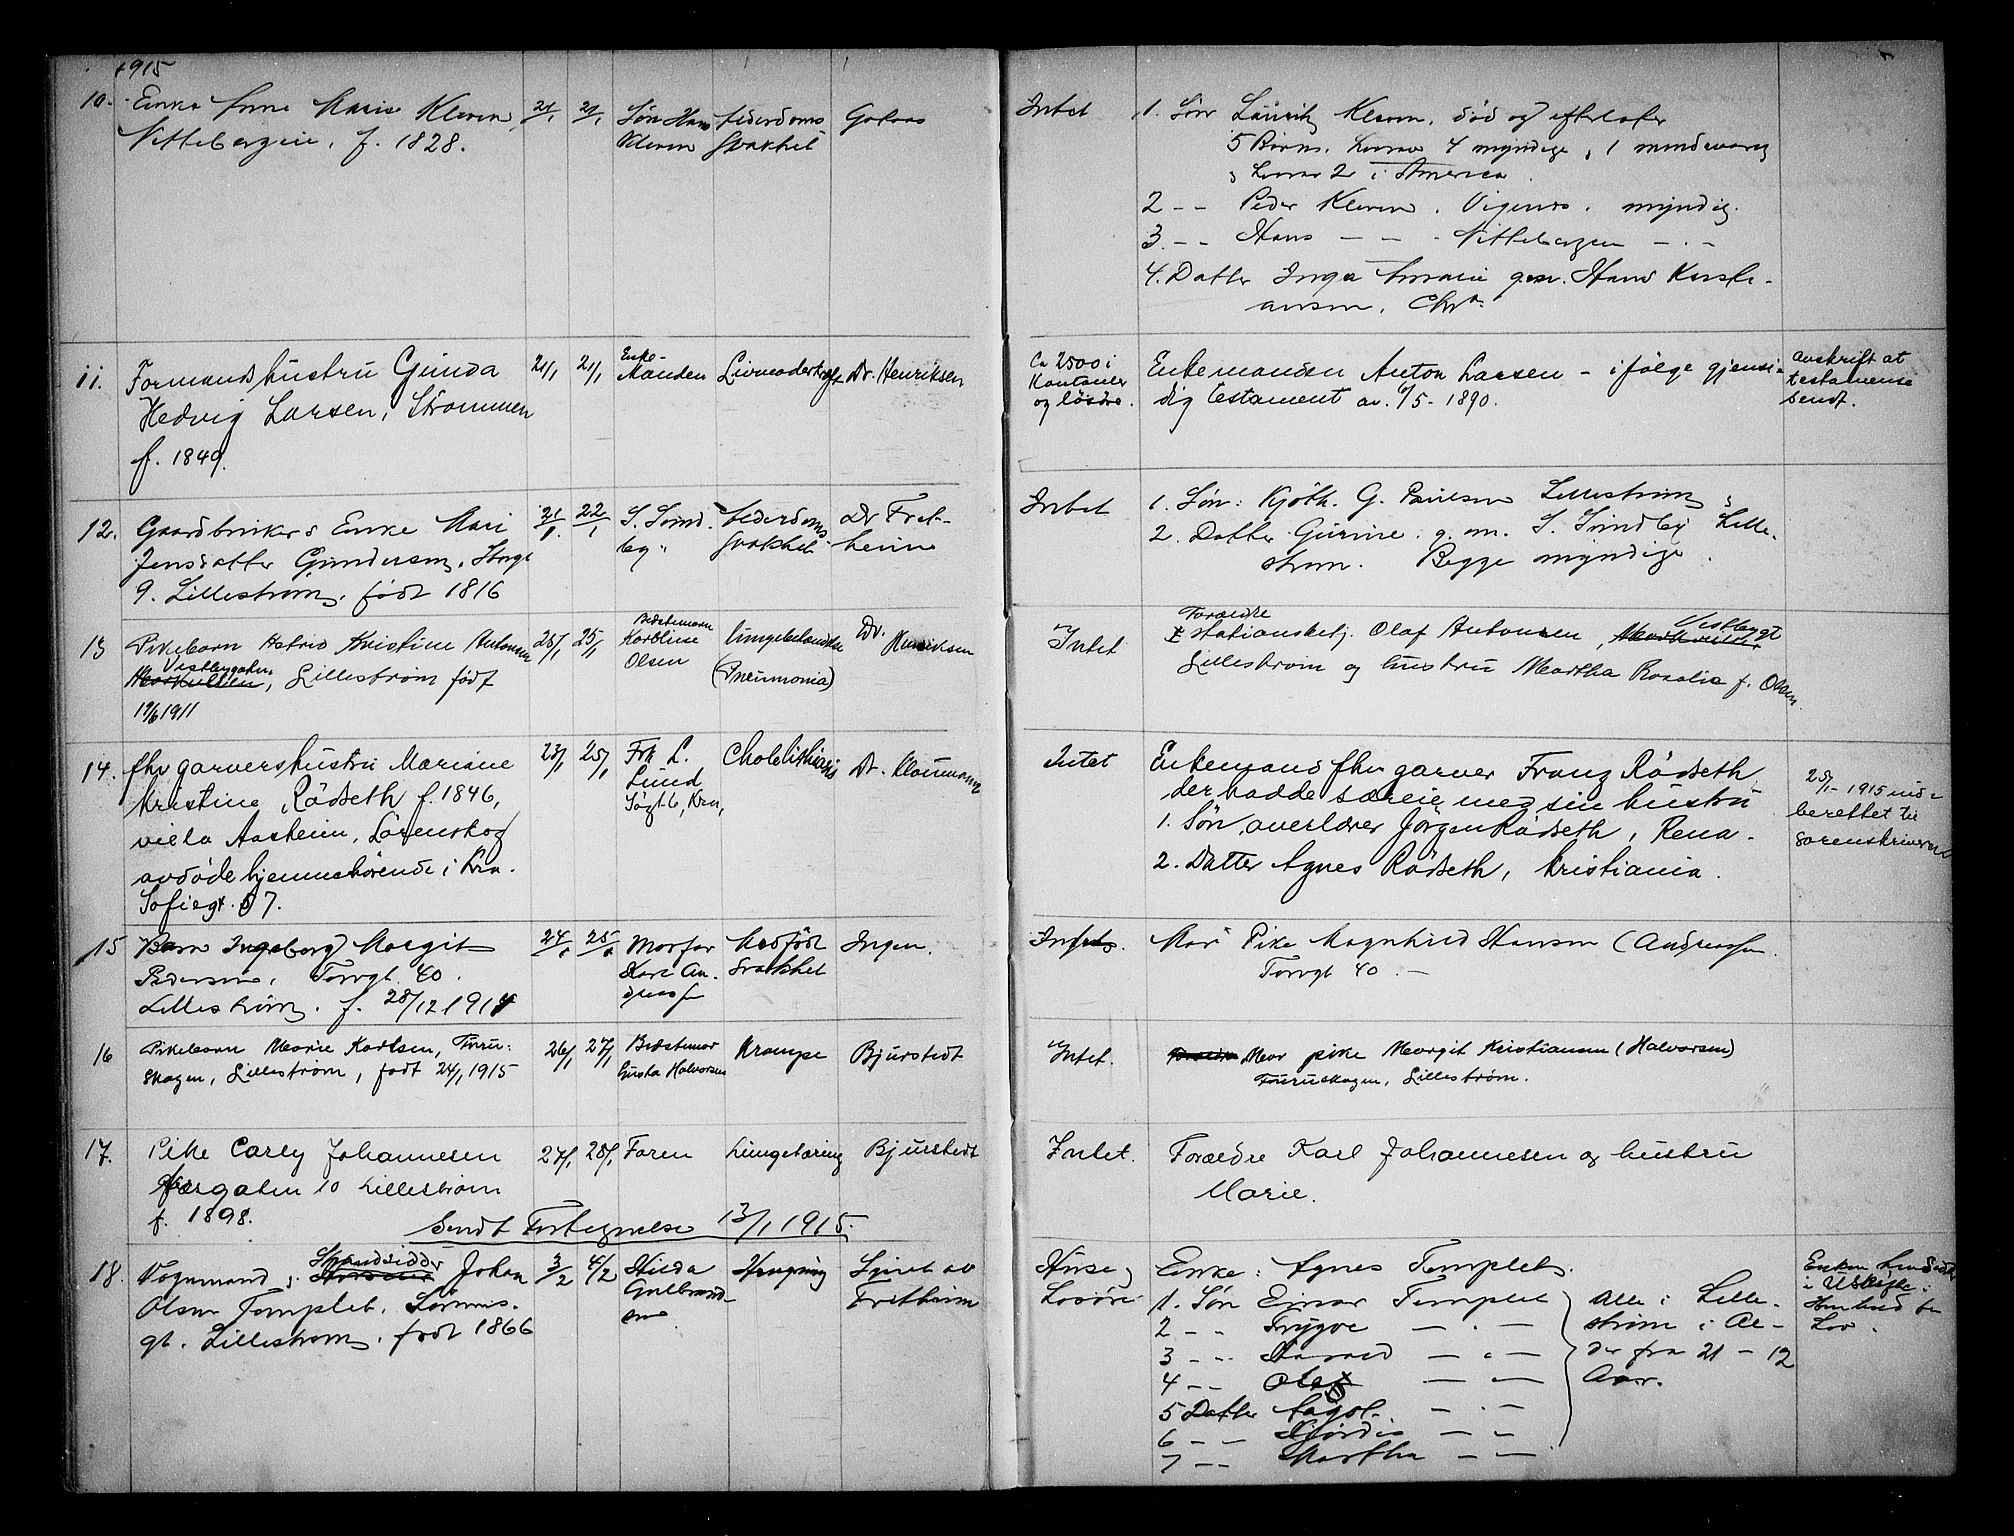 1915
10. Enke Anne Marie Kleven
Nittebergeie, f. 1828.
21/1 21/1
Søn Hans
Kleven
Alderdoms
svakhet
Intet
1. Søn Lauritz Kleven, død og efterlater
5 Børn, hvorav 4 myndige, 1 mindreaarig
hvorav 2 i America.
2 -- Peder Kleven. myndig.
3. -- Hans — — - Nittebergeie — . —
4. Datter Inga Amalie gm. Hans Kristi-
ansen, Chra.
11. Formandshustru Gunda
Hedvig Larsen, Strømmen
f. 1849.
21/1 21/1
Enke-
Manden
Livmoderkræft
Dr. Henriksen
Ca 2500 i
Kontanter
og løsøre.
Enkemanden Anton Larsen - ifølge gjensi-
dig testament av. 6/5 - 1890.
Avskrift at
testamente
sendt.
12. Gaardbrukers Enke Mari
Jensdatter Gundersen, Storgt
9. Lillestrøm, født 1816
21/1 22/1
S. Sund-
by
Alderdoms
svakhet
Dr Fret-
heim
Intet
1. Søn: Kjøbm. G. Paulsen Lillestrøm
2. Datter Gurine, g. m. S. Sundby Lille-
strøm. Begge myndige.
13 Pikebarn Astrid Kristine Antonsen
Vestbygaten
Lillestrøm født
19/6 1911
25/1 25/1
Bestemoren
Karoline
Olsen
lungebetændelse
(Pneumonia)
Dr. Henriksen
Intet
Forældre
stationsbetj. Olaf Antonsen, Vestbygt
Lillestrøm og hustru Martha Rosalie f. Olsen.
14. fhv garvershustru Mariane
Kristine Rådseth f. 1846,
villa Aasheim, Lørenskog
avdøde hjemmehørende i Kra.
Sofiegt. 57.
23/1 25/1
Frk L.
Lund
Kra,
Cholelithiasis
Dr. Kloumann
Intet
Enkemand fhv garver Franz Rådseth
der hadde særeie med sin hustru
1. Søn, overlærer Jørgen Rådseth, Rena.
2. Datter Agnes Rådseth, Kristiania.
25/1 - 1915 ind-
berettet til
sorenskriveren
15 Barn Ingeborg Margit
Pedersen, Torvgt. 40.
Lillestrøm. f. 28/12 1914
24/1 25/1
Morfar
Kare An-
dreassen
Medfødt
svakhet
Ingen.
Intet.
Mor Pike Magnhild Hansen (Andreassen
Torvgt 40. —
16 Pikebarn Marie Karlsen, Furu-
skogen, Lillestrøm, født 24/1 1915
26/1 27/1
Bedstemor
Gusta Halvorsen
Krampe
Bjurstedt
Intet.
Mor pike Margit Kristiansen (Halvorsen)
Furuskogen, Lillestrøm.
17. Pike Carly Johannesen
10 Lillestrøm
f. 1898.
27/1 28/1
Faren
Lungetæring
Bjurstedt
Intet.
Forældre Karl Johannesen og hustru
Marie.
Sendt Fortegnelse 13/1 1915.
18. Vognmand Johan
Olsen Templet,
gt. Lillestrøm, født 1866
3/2 4/2
Hilda
Gulbrand-
sen
Hængning
Synet av
Fretheim
Huse
Løsøre
Enke: Agnes Templet.
1. Søn Einar Templet
2 -- Trygve — . —
3 -- Harald — . —
4 -- Olaf — . —
5 Datter Aagot — . —
6 -- Hjørdis — —
7 -- Martha — —
Alle i Lille-
strøm i Al-
der fra 21 - 12
Aar.
Enken hensidder
i Uskiftet